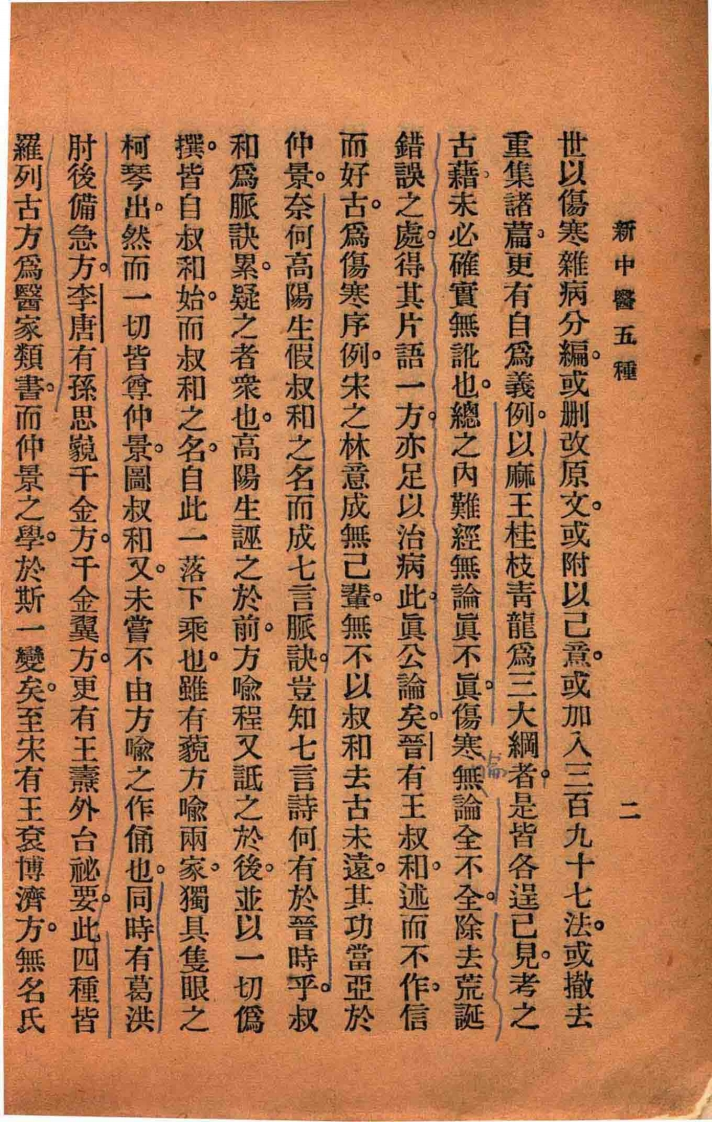 新中醫五種
二
世以傷寒雜病分編。或删改原文。或附以己意。或加入三百九十七法。或撤去
重集諸篇。更有自爲義例。以麻王桂枝靑龍爲三大綱者。是皆各逞己見。考之
古藉、未必確實無訛也。總之內難經無論眞不眞。傷寒無論全不全。除去荒誕
錯誤之處。得其片語一方。亦足以治病。此眞公論矣。晉有王叔和。述而不作。信
而好古。爲傷寒序例。宋之林意成無己輩。無不以叔和去古未遠。其功當亞於
仲景。奈何高陽生假叔和之名而成七言脈訣。豈知七言詩何有於晉時乎。叔
和爲脈訣累。疑之者衆也。高陽生誣之於前。方喩程又詆之於後。並以一切僞
撰。皆自叔和始。而叔和之名。自此一落下乘也。雖有藐方喩兩家。獨具隻眼之
柯琴出。然而一切皆尊仲景。圖叔和。又未嘗不由方喩之作俑也。同時有葛洪
肘後備急方。李唐有孫思巍千金方。千金翼方。更有王燾外台祕要。此四種皆
羅列古方。爲醫家類書。而仲景之學。於斯一變矣。至宋有王袞博濟方。無名氏
論